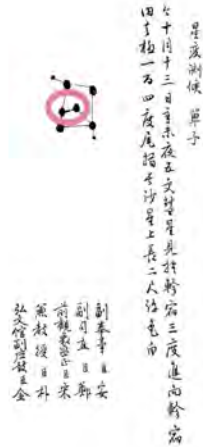 星度測候 單子
今十月十三日辛未夜五更彗星見於軫宿三度進向軫宿
田去極一百四度尾指長沙星上長二尺信色白
副奉事臣安
副司直臣鄭
前觀象監正臣宋
兼教授臣朴
弘文館副應敎臣金